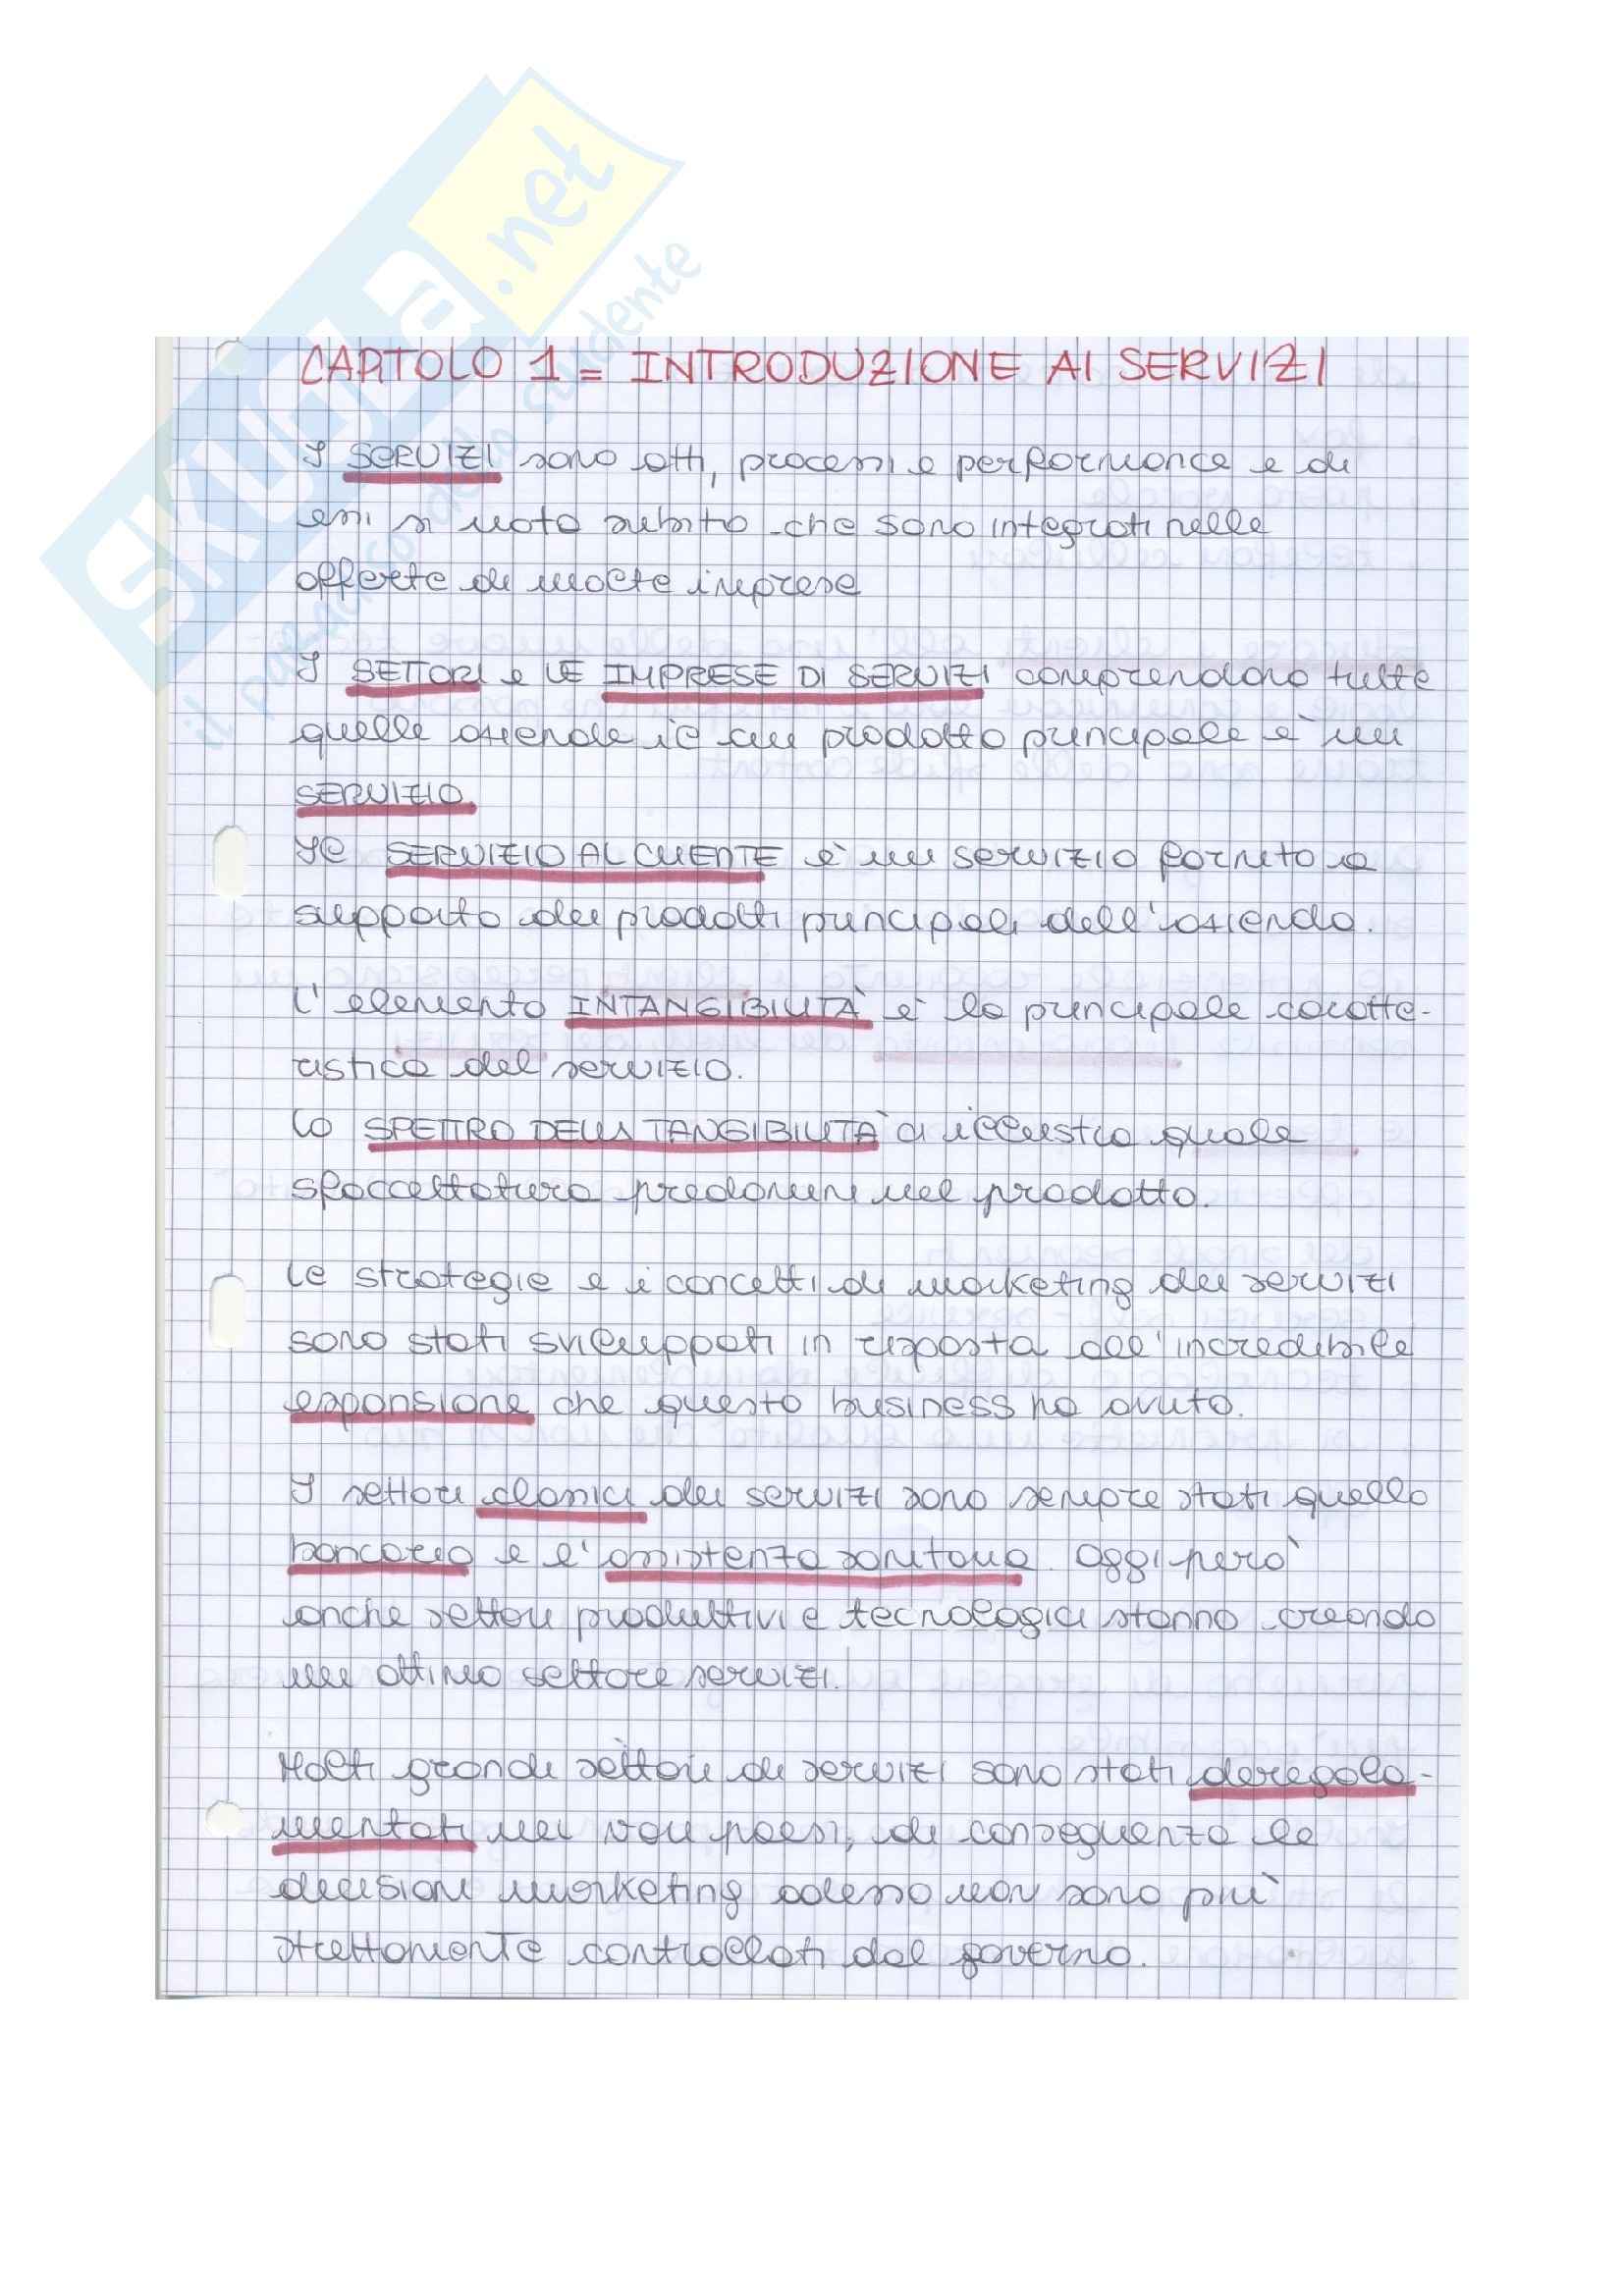 SKUOLA.net
il paradiso dello studente
CAPITOLO 1 = INTRODUZIONE AI SERVIZI
I SERVIZI sono atti, processi e performance e di
essi si nota subito che sono integrati nelle
offerte di molte imprese
I SETTORI e LE IMPRESE DI SERVIZI comprendono tutte
quelle aziende il cui prodotto principale è un
SERVIZIO.
Il SERVIZIO AL CLIENTE è un servizio fornito a
supporto dei prodotti principali dell'azienda.
L'elemento INTANGIBILITÀ è la principale caratte-
ristica del servizio.
Lo SPETTRO DELLA TANGIBILITÀ ci illustra quale
sfaccettatura predomini nel prodotto.
Le strategie e i concetti di marketing dei servizi
sono stati sviluppati in risposta all'incredibile
espansione che questo business ha avuto.
I settori classici dei servizi sono sempre stati quello
bancario e l'assistenza sanitaria. Oggi però
anche settori produttivi e tecnologici stanno creando
un ottimo settore servizi.
Molti grandi settori di servizi sono stati deregola-
mentati nei vari paesi, di conseguenza le
decisioni marketing adesso non sono più
strettamente controllati dal governo.